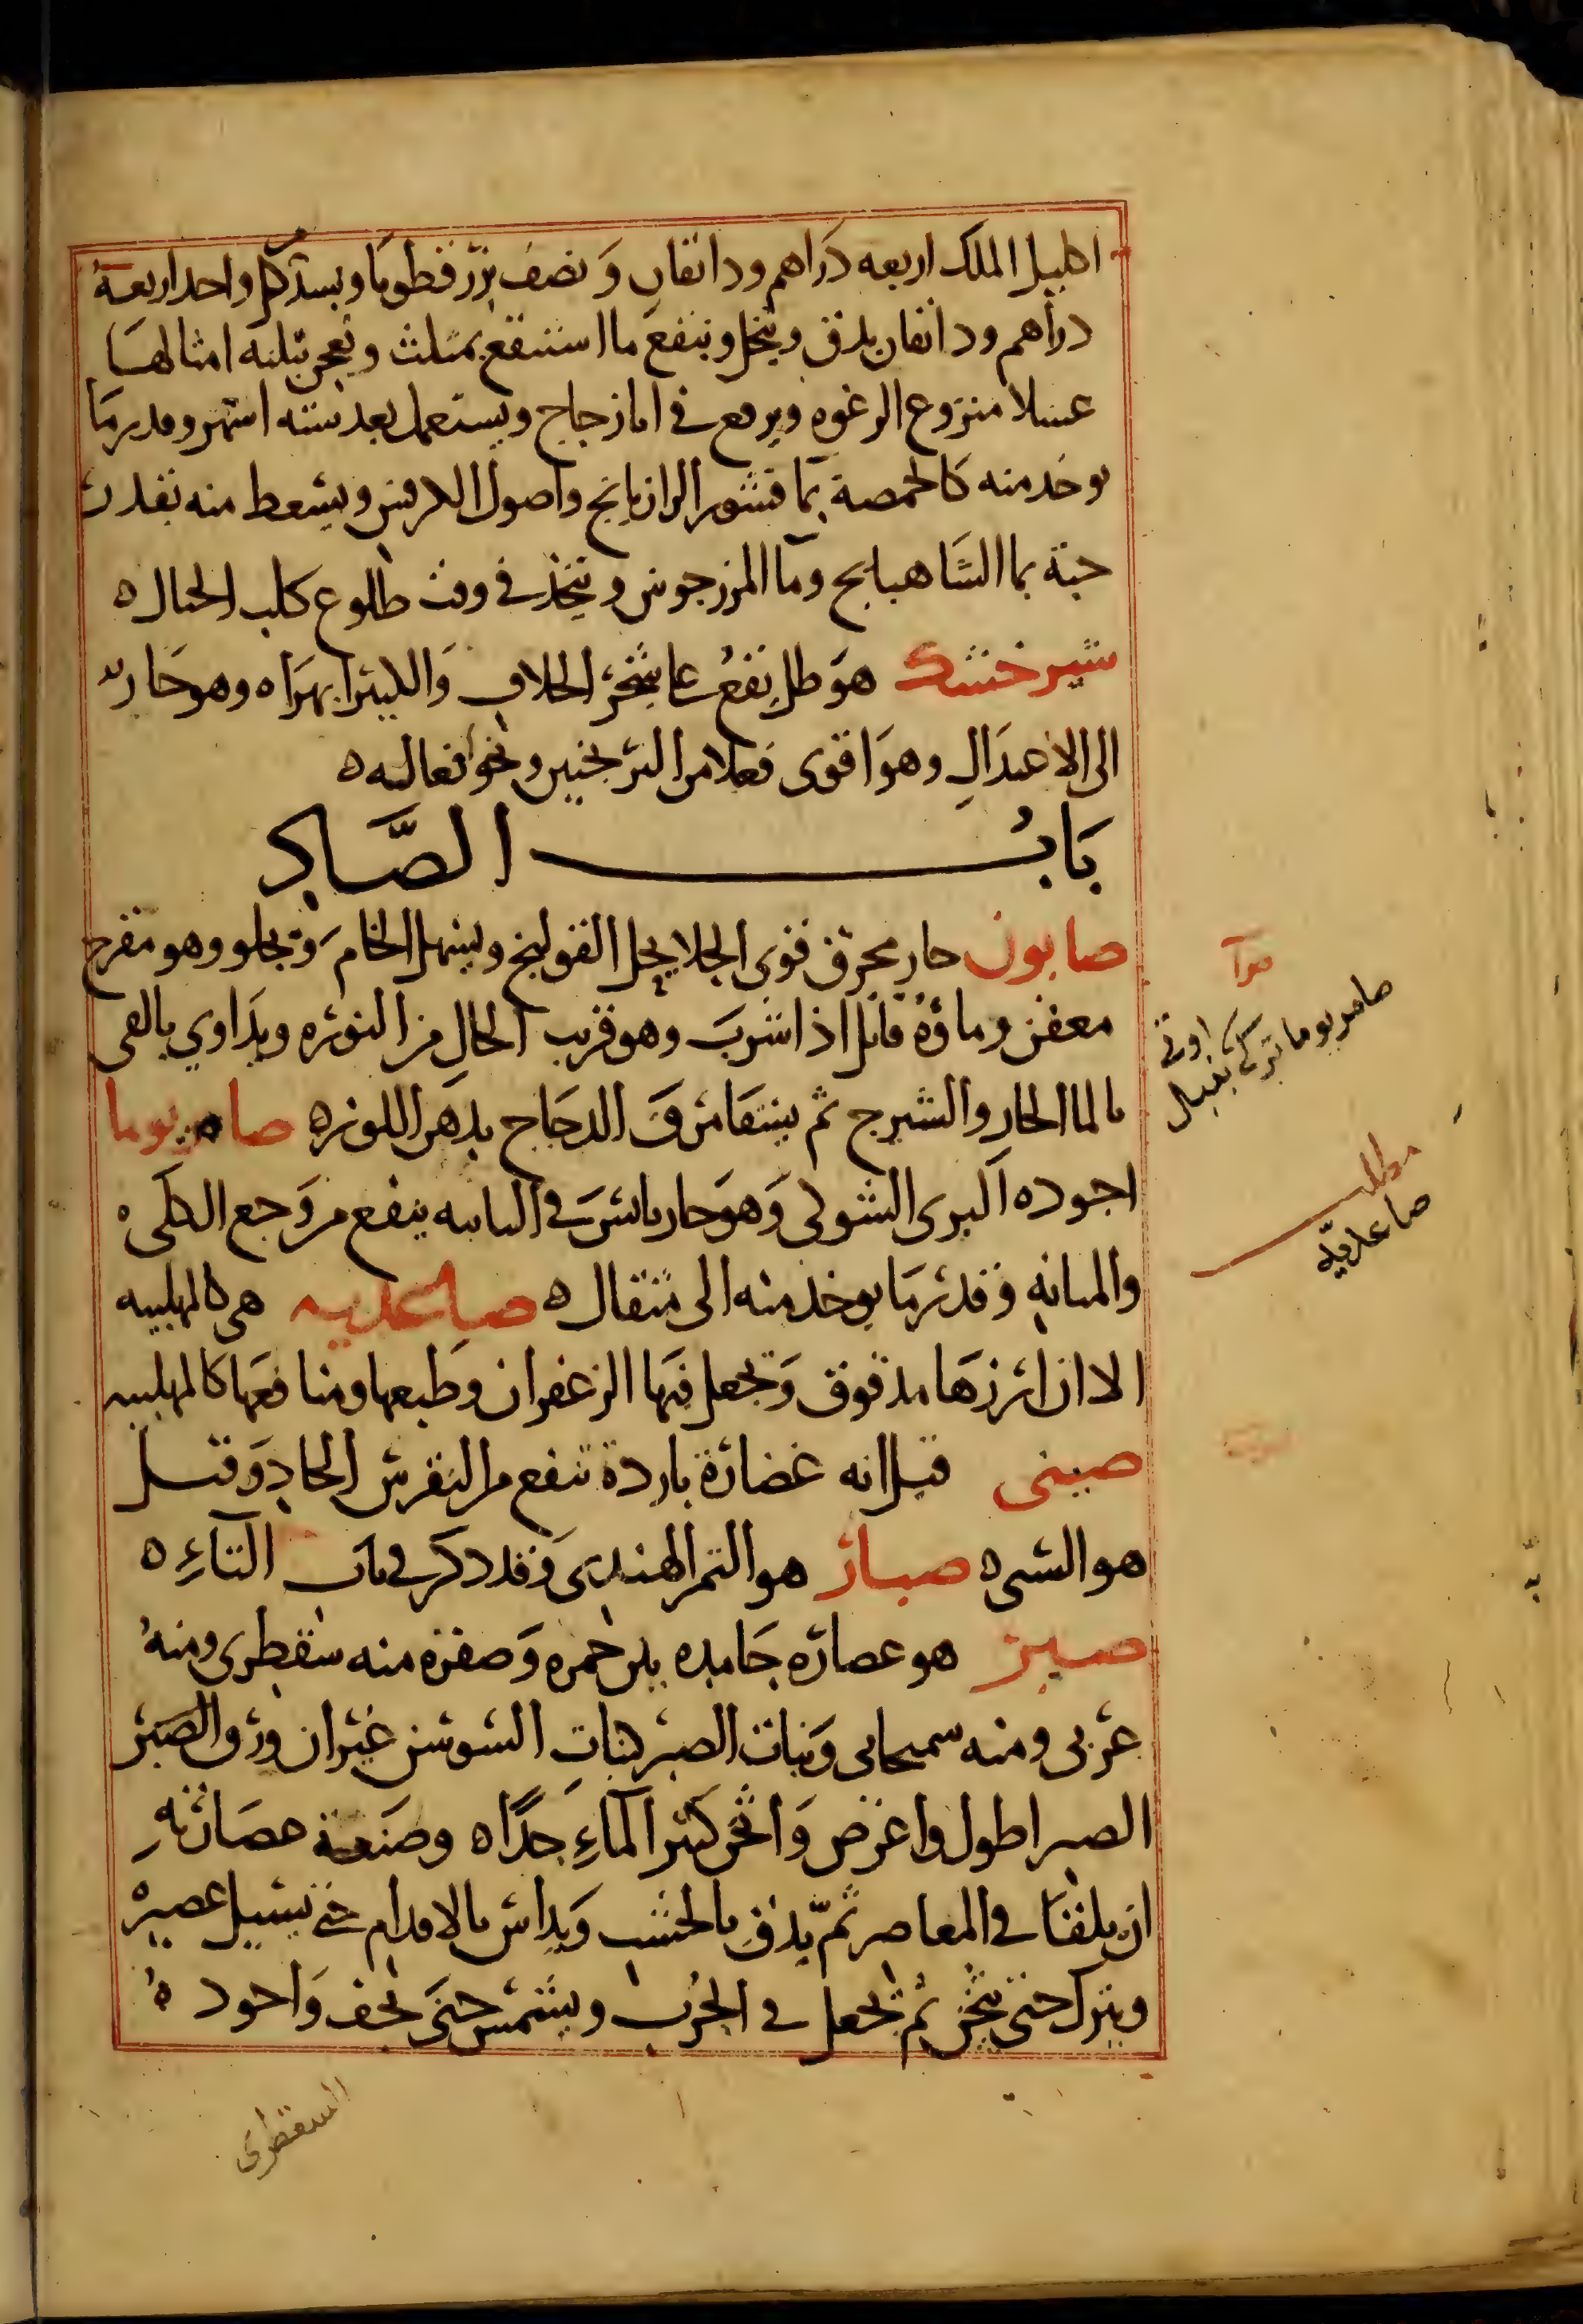 اكليل الملك اربعه دراهم ودانقان ونصف بزر قطونا وبسد كل واحد اربعة
دراهم ودانقان يدق وينخل وينقع ما استنقع بمثلث ويعجن بثلثه امثالها
عسلا منزوع الرغوه ويرفع في انا زجاج ويستعمل بعد سته اشهر وقدر ما
يوخذ منه كالحمصة بما قشور الرازيانج واصول الكرفس ويسعط منه بقدر
حبة بما الشاهبابج وما المرزجوش ويتخذ في وقت طلوع كلب الجبار ه
شير خشك هو طل يقع على شجر الخلاف والكبر بهراه وهو حار
الى الاعتدال وهو اقوى فعلا من الترنجبين ونحو افعاله ه
باب الصاد
صابون حار محرق قوى الجلا يحل القولنج ويسهل الخام ويجلو وهو مقرح
معفن وماؤه قاتل اذا شرب وهو قريب الحال من النوره ويداوي بالقى
بالما الحار والشيرج ثم يسقا مرق الدجاج بدهن اللوز ه صامريوما
اجوده البرى الشوكى وهو حار يابس في الثانيه ينفع من وجع الكلى
والمثانه وقدر ما يوخذ منه الى مثقال ه صاعديه هى كالمهلبيه
الا ان ارزها مدقوق ويجعل فيها الزعفران وطبعها ومنافعها كالمهلبيه
صينى قيل انه غضارة باردة تنفع من النقرس الحار وقيل
هو الشى ه صبار هو التمر الهندى وقد ذكر في باب التاء ه
صبر هو عصاره جامده بين حمره وصفره منه سقطرى ومنه
عربى ومنه سمنجانى ونبات الصبر كنبات السوسن غير ان ورق الصبر
الصبر اطول واعرض واثخن كثير الماء جدا ه وصنعة عصارته
ان يلقا في المعاصر ثم يدق بالخشب ويداس بالاقدام حتى يسيل عصيره
ويترك حتى يثخن ثم يجعل في الجرب ويشمس حتى يجف واجوده
السقطرى
صامريوما
مطلب
صاعديه